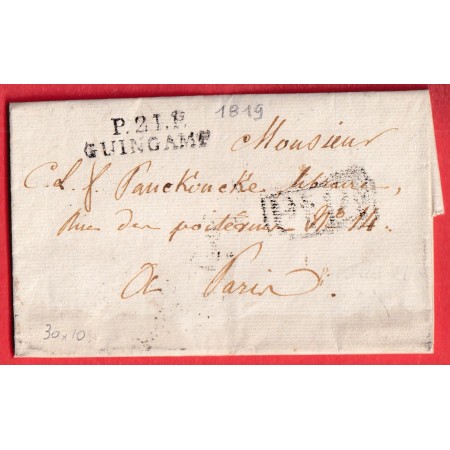 1819
P.21.P.
GUINGAMP
Monsieur
C. L. f. Panckoucke libraire,
Rue des poitevins No. 14.
A Paris.
30x10